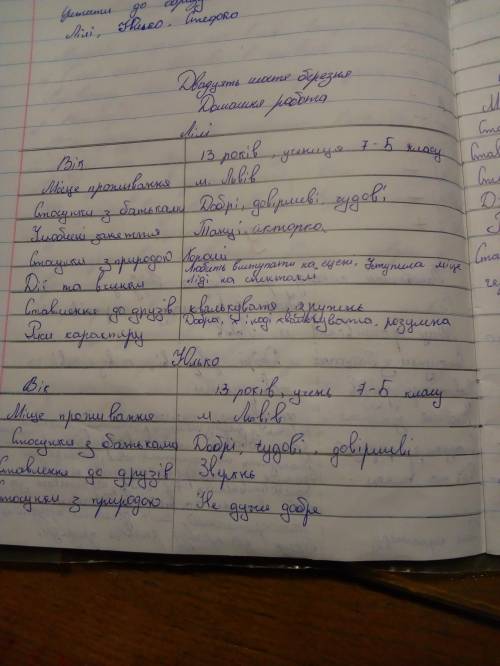 цитати до образу
Лілі, Юлько, Стефко
Двадцять шосте березня
Домашня робота
Лілі
Вік 13 років, учениця 7-Б класу
Місце проживання м. Львів
Стосунки з батьками Добрі, довірливі, чудові
Улюблені заняття Танці, акторка
Стосунки з природою Хороші
Дії та вчинки Любить виступати на сцені, Уступила місце Ліді на спектаклі
Ставлення до друзів
Риси характеру Добра, іноді розумна
Юлько
Вік 13 років, учень 7-Б класу
Місце проживання м. Львів
Стосунки з батьками Добрі, чудові, довірливі
Ставлення до друзів
Стосунки з природою Не дуже добре